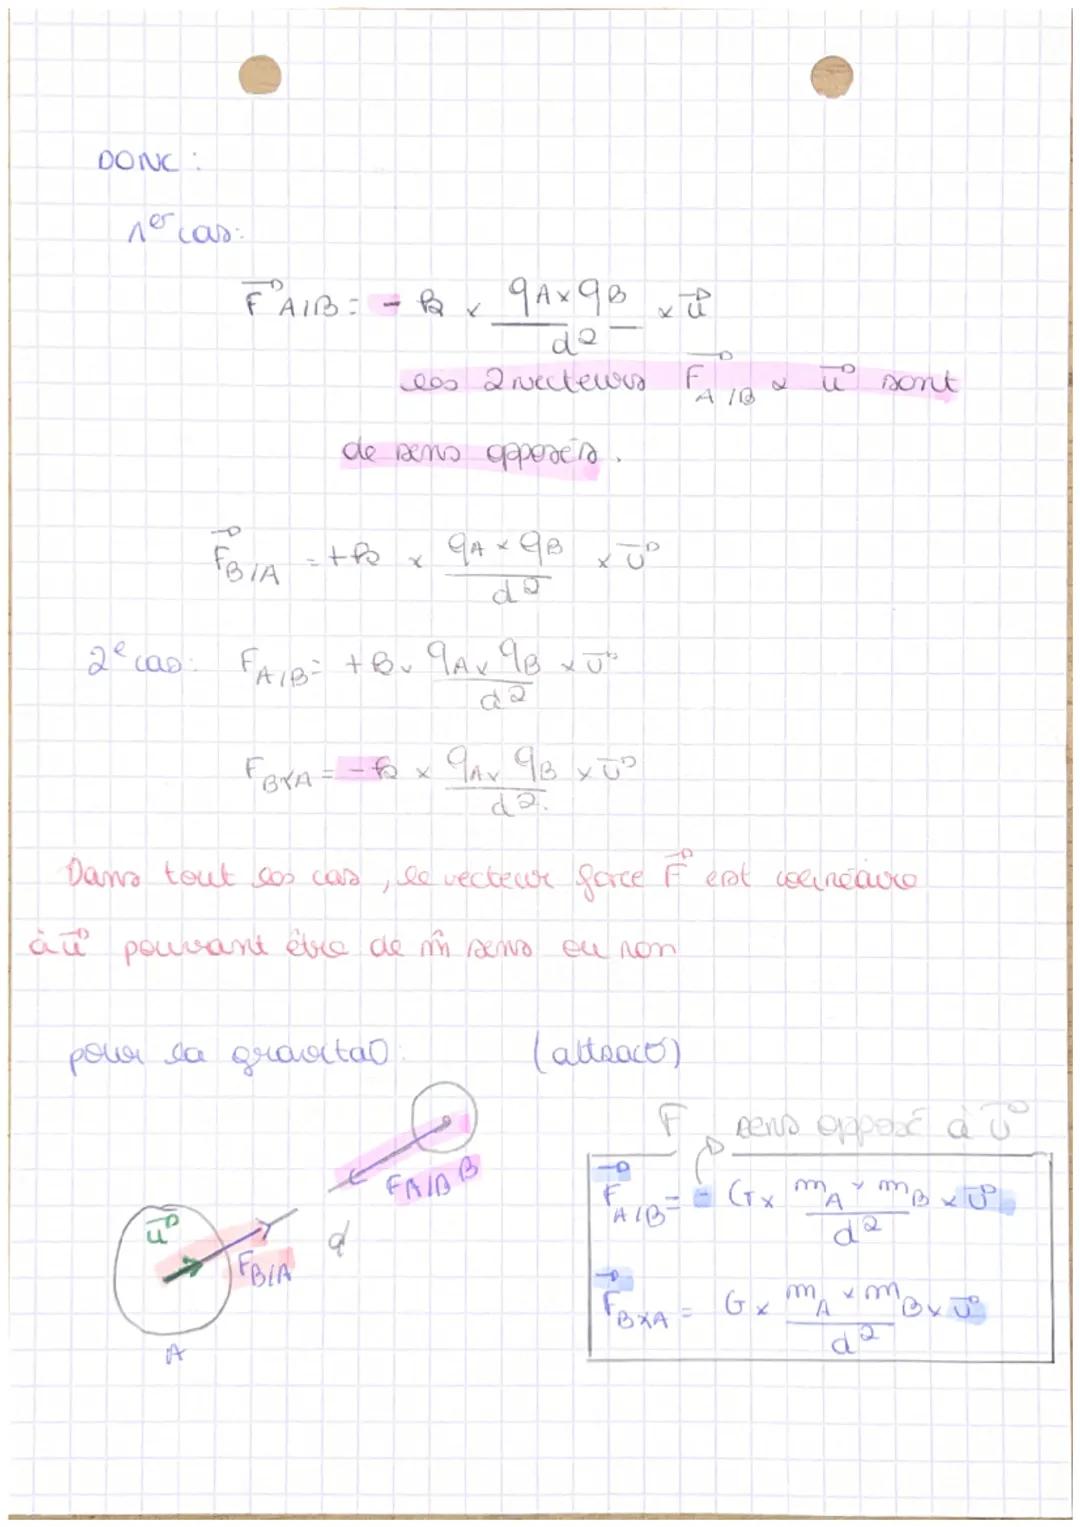 DONC :
1er cas:
F A/B = - k x qA x qB / d² x u
les 2 vecteurs F A/B & u sont
de sens opposés.
F B/A = + k x qA x qB / d² x u
2e cas: F A/B = + k x qA x qB / d² x u
F B/A = - k x qA x qB / d² x u
Dans tout les cas, le vecteur force F est colinéaire
à u pouvant être de m̂ sens ou non
pour la gravita°: (attract°)
F sens opposé à u
F A/B = - G x mA x mB / d² x u
F B/A = G x mA x mB / d² x u
F A/B B
u
d
F B/A
A